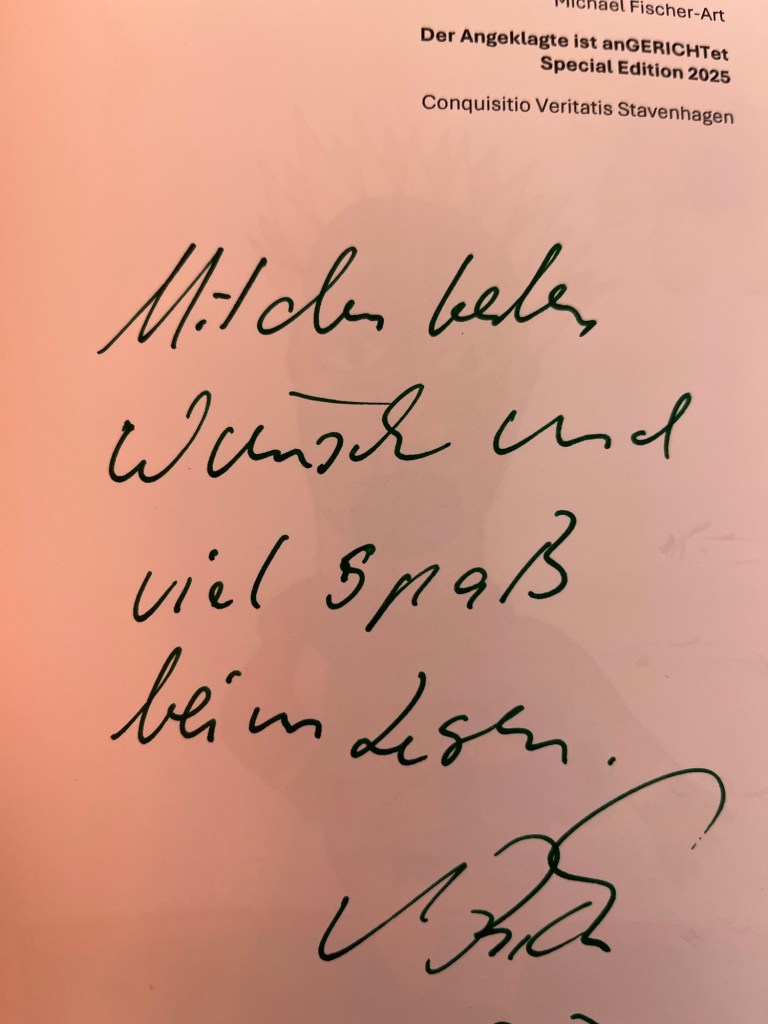 Michael Fischer-Art
Der Angeklagte ist anGERICHTet
Special Edition 2025
Conquisitio Veritatis Stavenhagen
Mit den besten
Wünsch und
viel Spaß
beim Lesen.